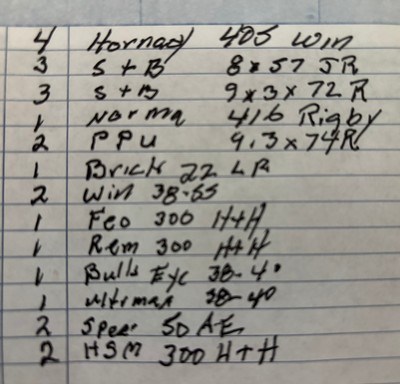 4 Hornady 405 Win
3 S+B 8x57 JR
3 S+B 9x3x72R
1 Norma 416 Rigby
2 PPU 9.3x74R
1 Brick 22 LR
2 Win 38-55
1 Fed 300 H+H
1 Rem 300 H+H
1 Bulls Eye 38-40
1 ultramax 38-40
2 Speer 50 AE
2 HSM 300 H+H